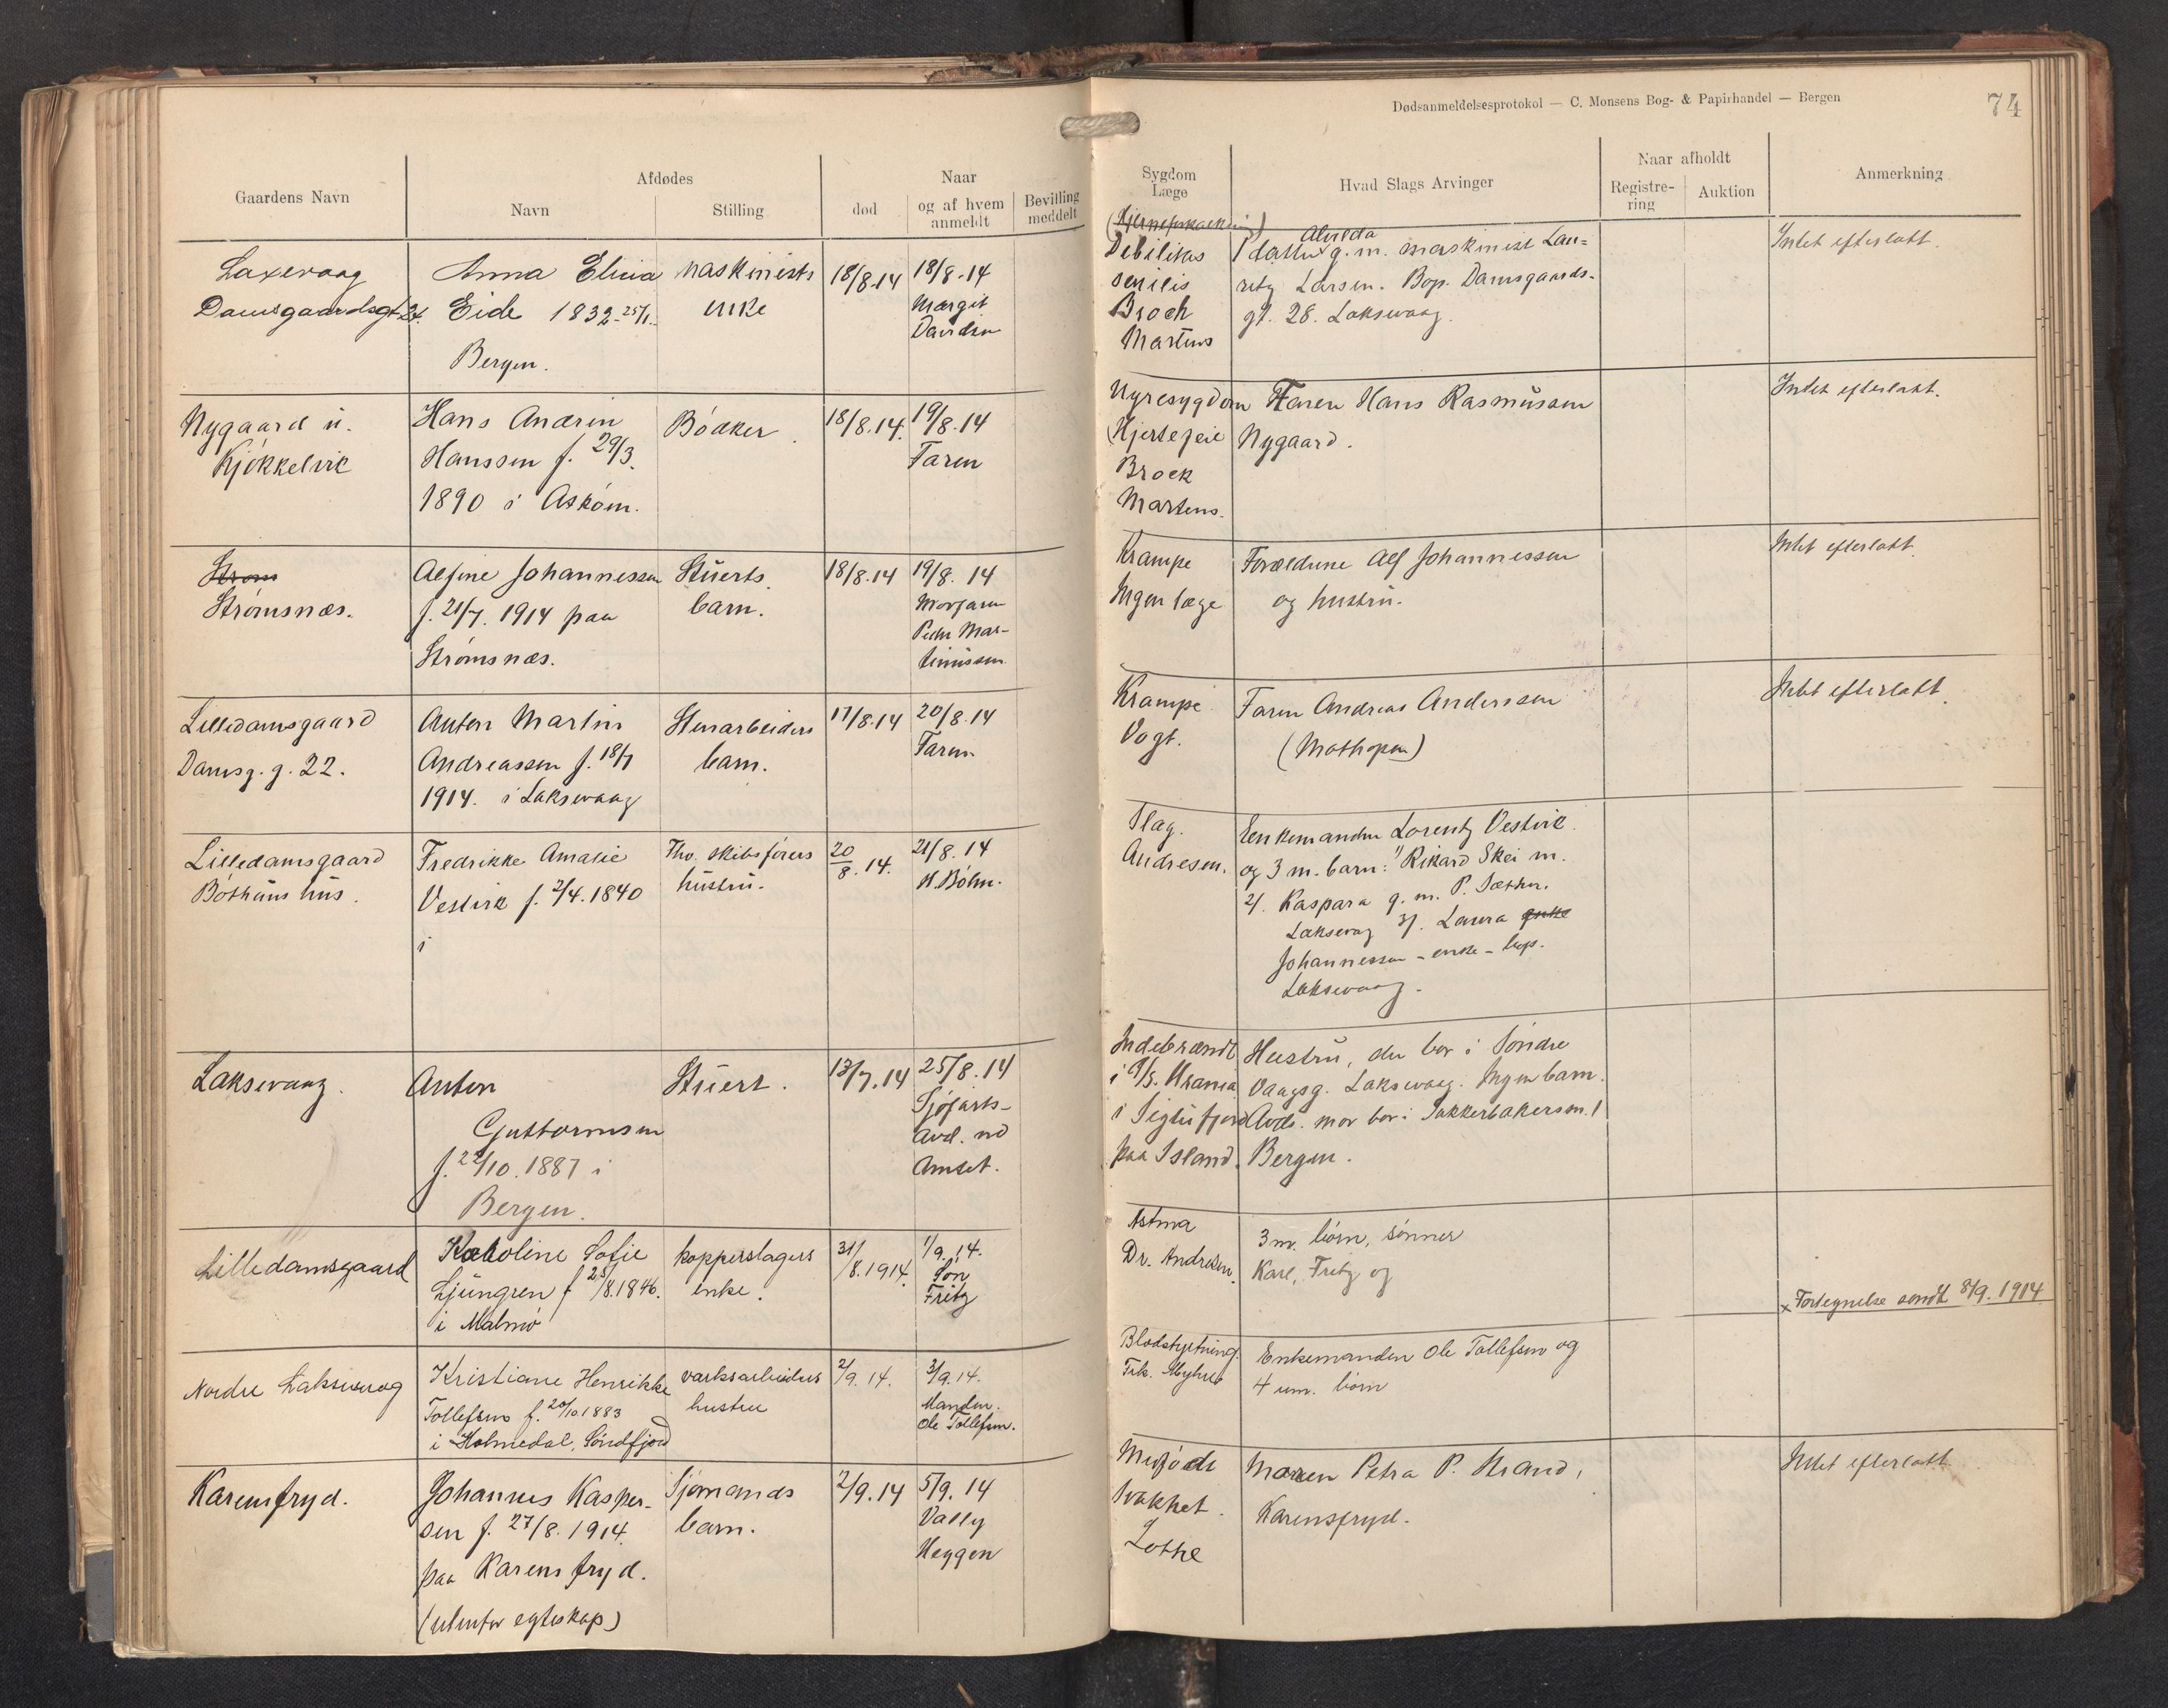 Dødsanmeldelsesprotokol — C. Monsens Bog- & Papirhandel — Bergen
74
Gaardens Navn
Afdødes
Navn
Stilling
død
Naar
og af hvem
anmeldt
Bevilling
meddelt
Laxevaag
Damsgaardsgt
Anna Elisia
Eide 1832-25/1.
Bergen.
maskinists
enke
18/8.14
18/8.14
Margit
Davidsen
Nygaard u.
Kjøkkelvik
Hans Andrin
Hanssen f. 29/3.
1890 i Askøen.
Bødker.
18/8.14.
19/8.14
Faren
Strøm
Strømsnæs.
Alfine Johannessen
f. 21/7. 1914 paa
Strømsnæs.
Stuerts
barn.
18/8.14
19/8. 14
Morfaren
Peder Mar-
tinussen.
Lilledamsgaard
Damsg. g. 22.
Anton Martin
Andreassen f. 18/7
1914. i Laksevaag
Stenarbeiders
barn.
17/8.14
20/8.14
Faren
Lilledamsgaard
Bøthuns hus.
Fredrikke Amalie
Vestvik f. 2/4. 1840
i
Fhv. skibsførers
hustru.
20/8.14.
21/8.14
H. Bøhn.
Laksevaag.
Anton
Guttormsen
f. 22/10. 1887 i
Bergen.
Stuert.
13/7.14
25/8.14
Sjøfarts-
Avd. ved
Amtet.
Lilledamsgaard
Karoline Sofie
Ljungren f 25/8.1846.
i Malmø
kopperslagers
enke.
31/8.1914.
1/9.14.
Søn
Fritz
Nordre Laksevaag
Kristiane Henrikke
Tollefsen f. 20/10.1883
i Holmedal, Søndfjord
værksarbeiders
hustru
2/9.14.
3/9.14.
Manden.
Ole Tollefsen.
Karensfryd.
Johannes Kasper-
sen f. 27/8. 1914.
paa Karensfryd.
(utenfor egteskap)
Sjømands
barn.
2/9.14
5/9. 14
Vally
Heggen
Sygdom
Læge
Hvad Slags Arvinger
Naar afholdt
Registre-
ring
Auktion
Anmerkning
Debilitas
senilis
Broch
Martens
Alvilda
1 datter g. m. maskinist Lau-
ritz Larsen. Bop. Damsgaards-
gt. 28. Laksevaag.
Intet efterlatt.
Nyresygdom
(Hjertefeil
Brock
Martens.
Faren Hans Rasmussen
Nygaard.
Intet efterlatt.
Krampe
Ingen læge
Forældrene Alf Johannessen
og hustru.
Intet efterlatt.
Krampe
Vogt.
Faren Andreas Anderssen
(Mathopen)
Intet efterlatt.
Slag.
Andresen.
Enkemanden Lorentz Vestvik.
og 3 m. barn: 1/ Rikard Skei m.
2/. Kaspara g. m. P. Sæther.
Laksevaag 3/. Laura enke
Johannessen - enke - bop.
Laksevaag.
Indebrændt
i D/S. Urania
i Siglufjord
paa Island.
Hustru, der bor i Søndre
Vaagsg. Laksevaag. Ingen barn.
Avds. mor bor i Sukkerbakersm. 1
Bergen.
Astma
Dr. Andresen.
3 m. børn, sønner
Karl, Fritz og
x Fortegnelse sendt 8/9. 1914
Blodstyrtning.
Frk. Myhre
Enkemanden Ole Tollefsen og
4 um. børn
Medfødt
svakhet.
Lothe
Moren Petra P. Strand,
Karensfryd.
Intet efterlatt.